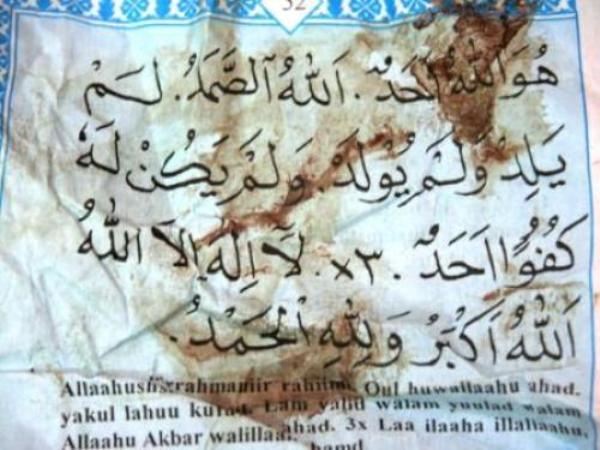 52
هُوَ اللّٰهُ اَحَدٌ . اَللّٰهُ الصَّمَدُ . لَمْ
يَلِدْ وَلَمْ يُوْلَدْ . وَلَمْ يَكُنْ لَهُ
كُفُوًا اَحَدٌ . ٣× . لَآ اِلٰهَ اِلَّا اللّٰهُ
اَللّٰهُ اَكْبَرُ وَلِلّٰهِ الْحَمْدُ .
rahmaniir rahiimi. Qul huwallaahu ahad.
yakul lahuu kufad. Lam yalid walam yuulad walam
Allaahu Akbar walillaa ahad. 3x Laa ilaaha illallaahu,
hamd